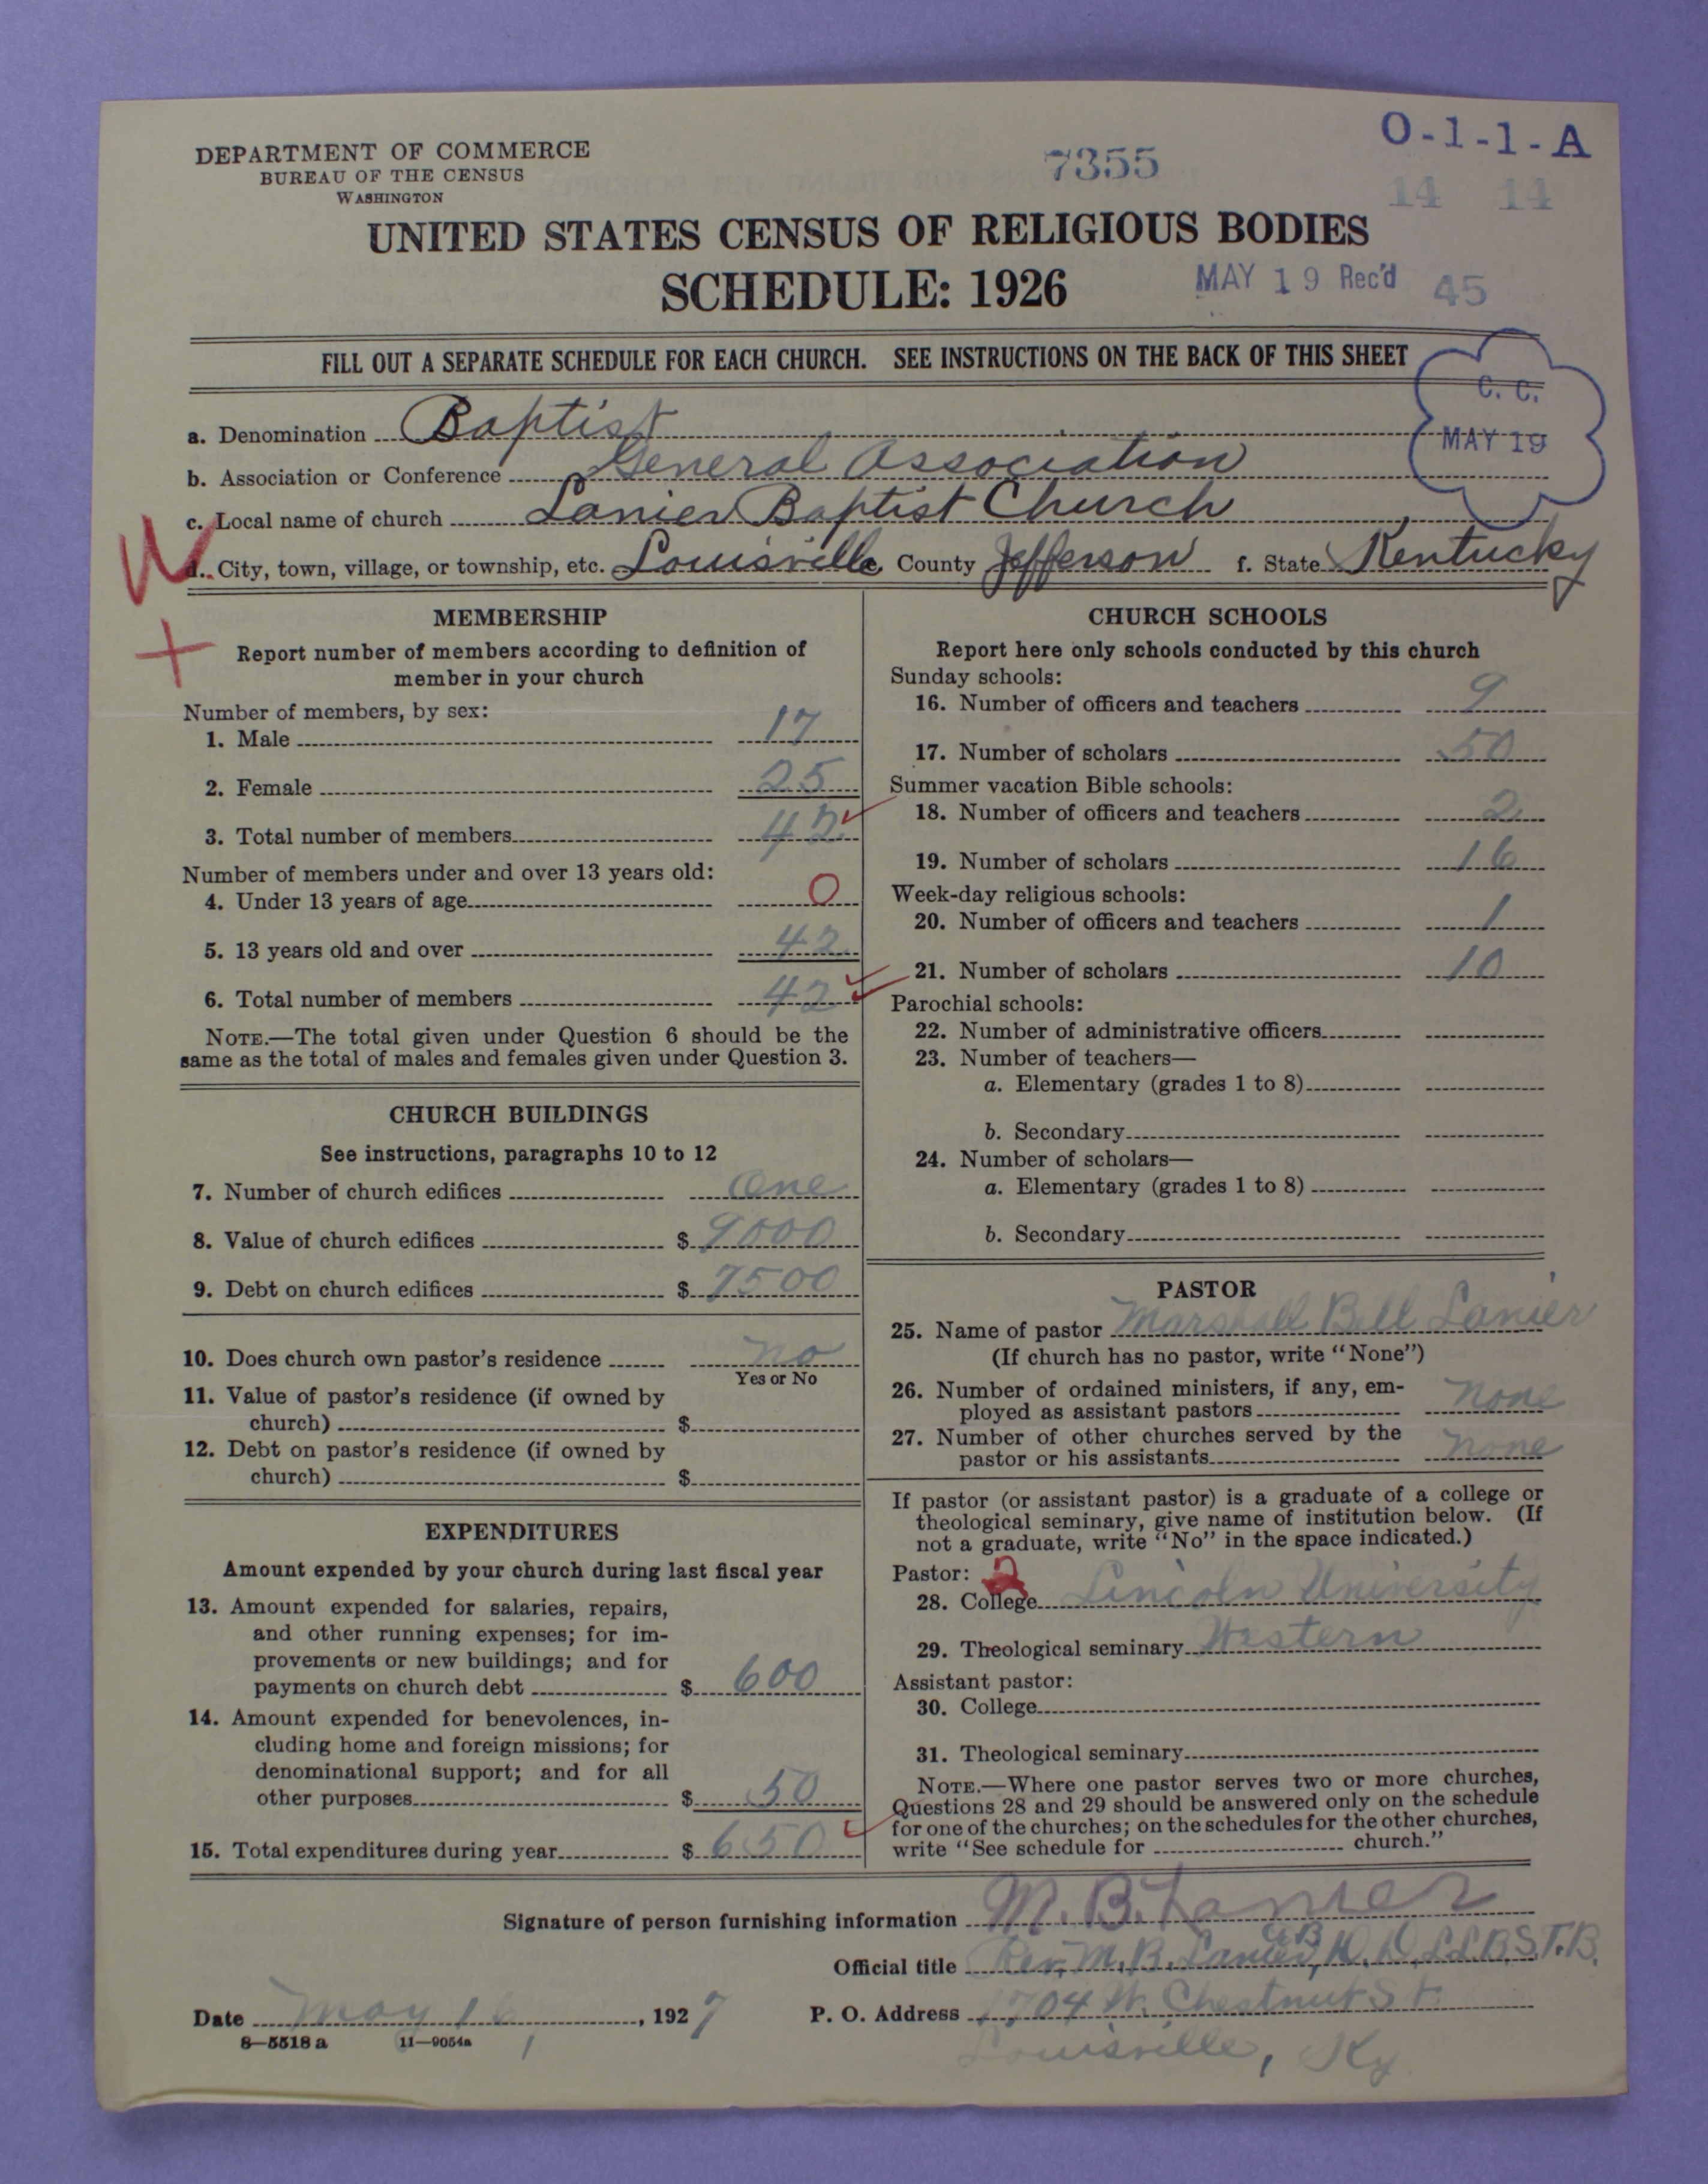 DEPARTMENT OF COMMERCE
BUREAU OF THE CENSUS
WASHINGTON
7355
O-1-1-A
14 14
UNITED STATES CENSUS OF RELIGIOUS BODIES
SCHEDULE: 1926
MAY 19 Rec'd 45
FILL OUT A SEPARATE SCHEDULE FOR EACH CHURCH. SEE INSTRUCTIONS ON THE BACK OF THIS SHEET
C. C.
MAY 19
a. Denomination Baptist
b. Association or Conference General Association
c. Local name of church Lanier Baptist Church
d. City, town, village, or township, etc. Louisville e. County Jefferson f. State Kentucky
MEMBERSHIP
Report number of members according to definition of
member in your church
Number of members, by sex:
1. Male 17
2. Female 25
3. Total number of members 42
Number of members under and over 13 years old:
4. Under 13 years of age 0
5. 13 years old and over 42
6. Total number of members 42
NOTE.—The total given under Question 6 should be the
same as the total of males and females given under Question 3.
CHURCH BUILDINGS
See instructions, paragraphs 10 to 12
7. Number of church edifices One
8. Value of church edifices $ 9000
9. Debt on church edifices $ 7500
10. Does church own pastor's residence no
Yes or No
11. Value of pastor's residence (if owned by
church) $
12. Debt on pastor's residence (if owned by
church) $
EXPENDITURES
Amount expended by your church during last fiscal year
13. Amount expended for salaries, repairs,
and other running expenses; for im-
provements or new buildings; and for
payments on church debt $ 600
14. Amount expended for benevolences, in-
cluding home and foreign missions; for
denominational support; and for all
other purposes $ 50
15. Total expenditures during year $ 650
CHURCH SCHOOLS
Report here only schools conducted by this church
Sunday schools:
16. Number of officers and teachers 9
17. Number of scholars 50
Summer vacation Bible schools:
18. Number of officers and teachers 2
19. Number of scholars 16
Week-day religious schools:
20. Number of officers and teachers 1
21. Number of scholars 10
Parochial schools:
22. Number of administrative officers
23. Number of teachers—
a. Elementary (grades 1 to 8)
b. Secondary
24. Number of scholars—
a. Elementary (grades 1 to 8)
b. Secondary
PASTOR
25. Name of pastor Marshall Bell Lanier
(If church has no pastor, write "None")
26. Number of ordained ministers, if any, em-
ployed as assistant pastors none
27. Number of other churches served by the
pastor or his assistants none
If pastor (or assistant pastor) is a graduate of a college or
theological seminary, give name of institution below. (If
not a graduate, write "No" in the space indicated.)
Pastor: 2
28. College Lincoln University
29. Theological seminary Western
Assistant pastor:
30. College
31. Theological seminary
NOTE.—Where one pastor serves two or more churches,
Questions 28 and 29 should be answered only on the schedule
for one of the churches; on the schedules for the other churches,
write "See schedule for church."
Signature of person furnishing information M. B. Lanier
Official title Rev. M. B. Lanier, A.B. D. D. LL.B. S.T.B.
Date May 16, 1927
P. O. Address 1704 W. Chestnut St.
Louisville, Ky
8—5518 a 11—9054a